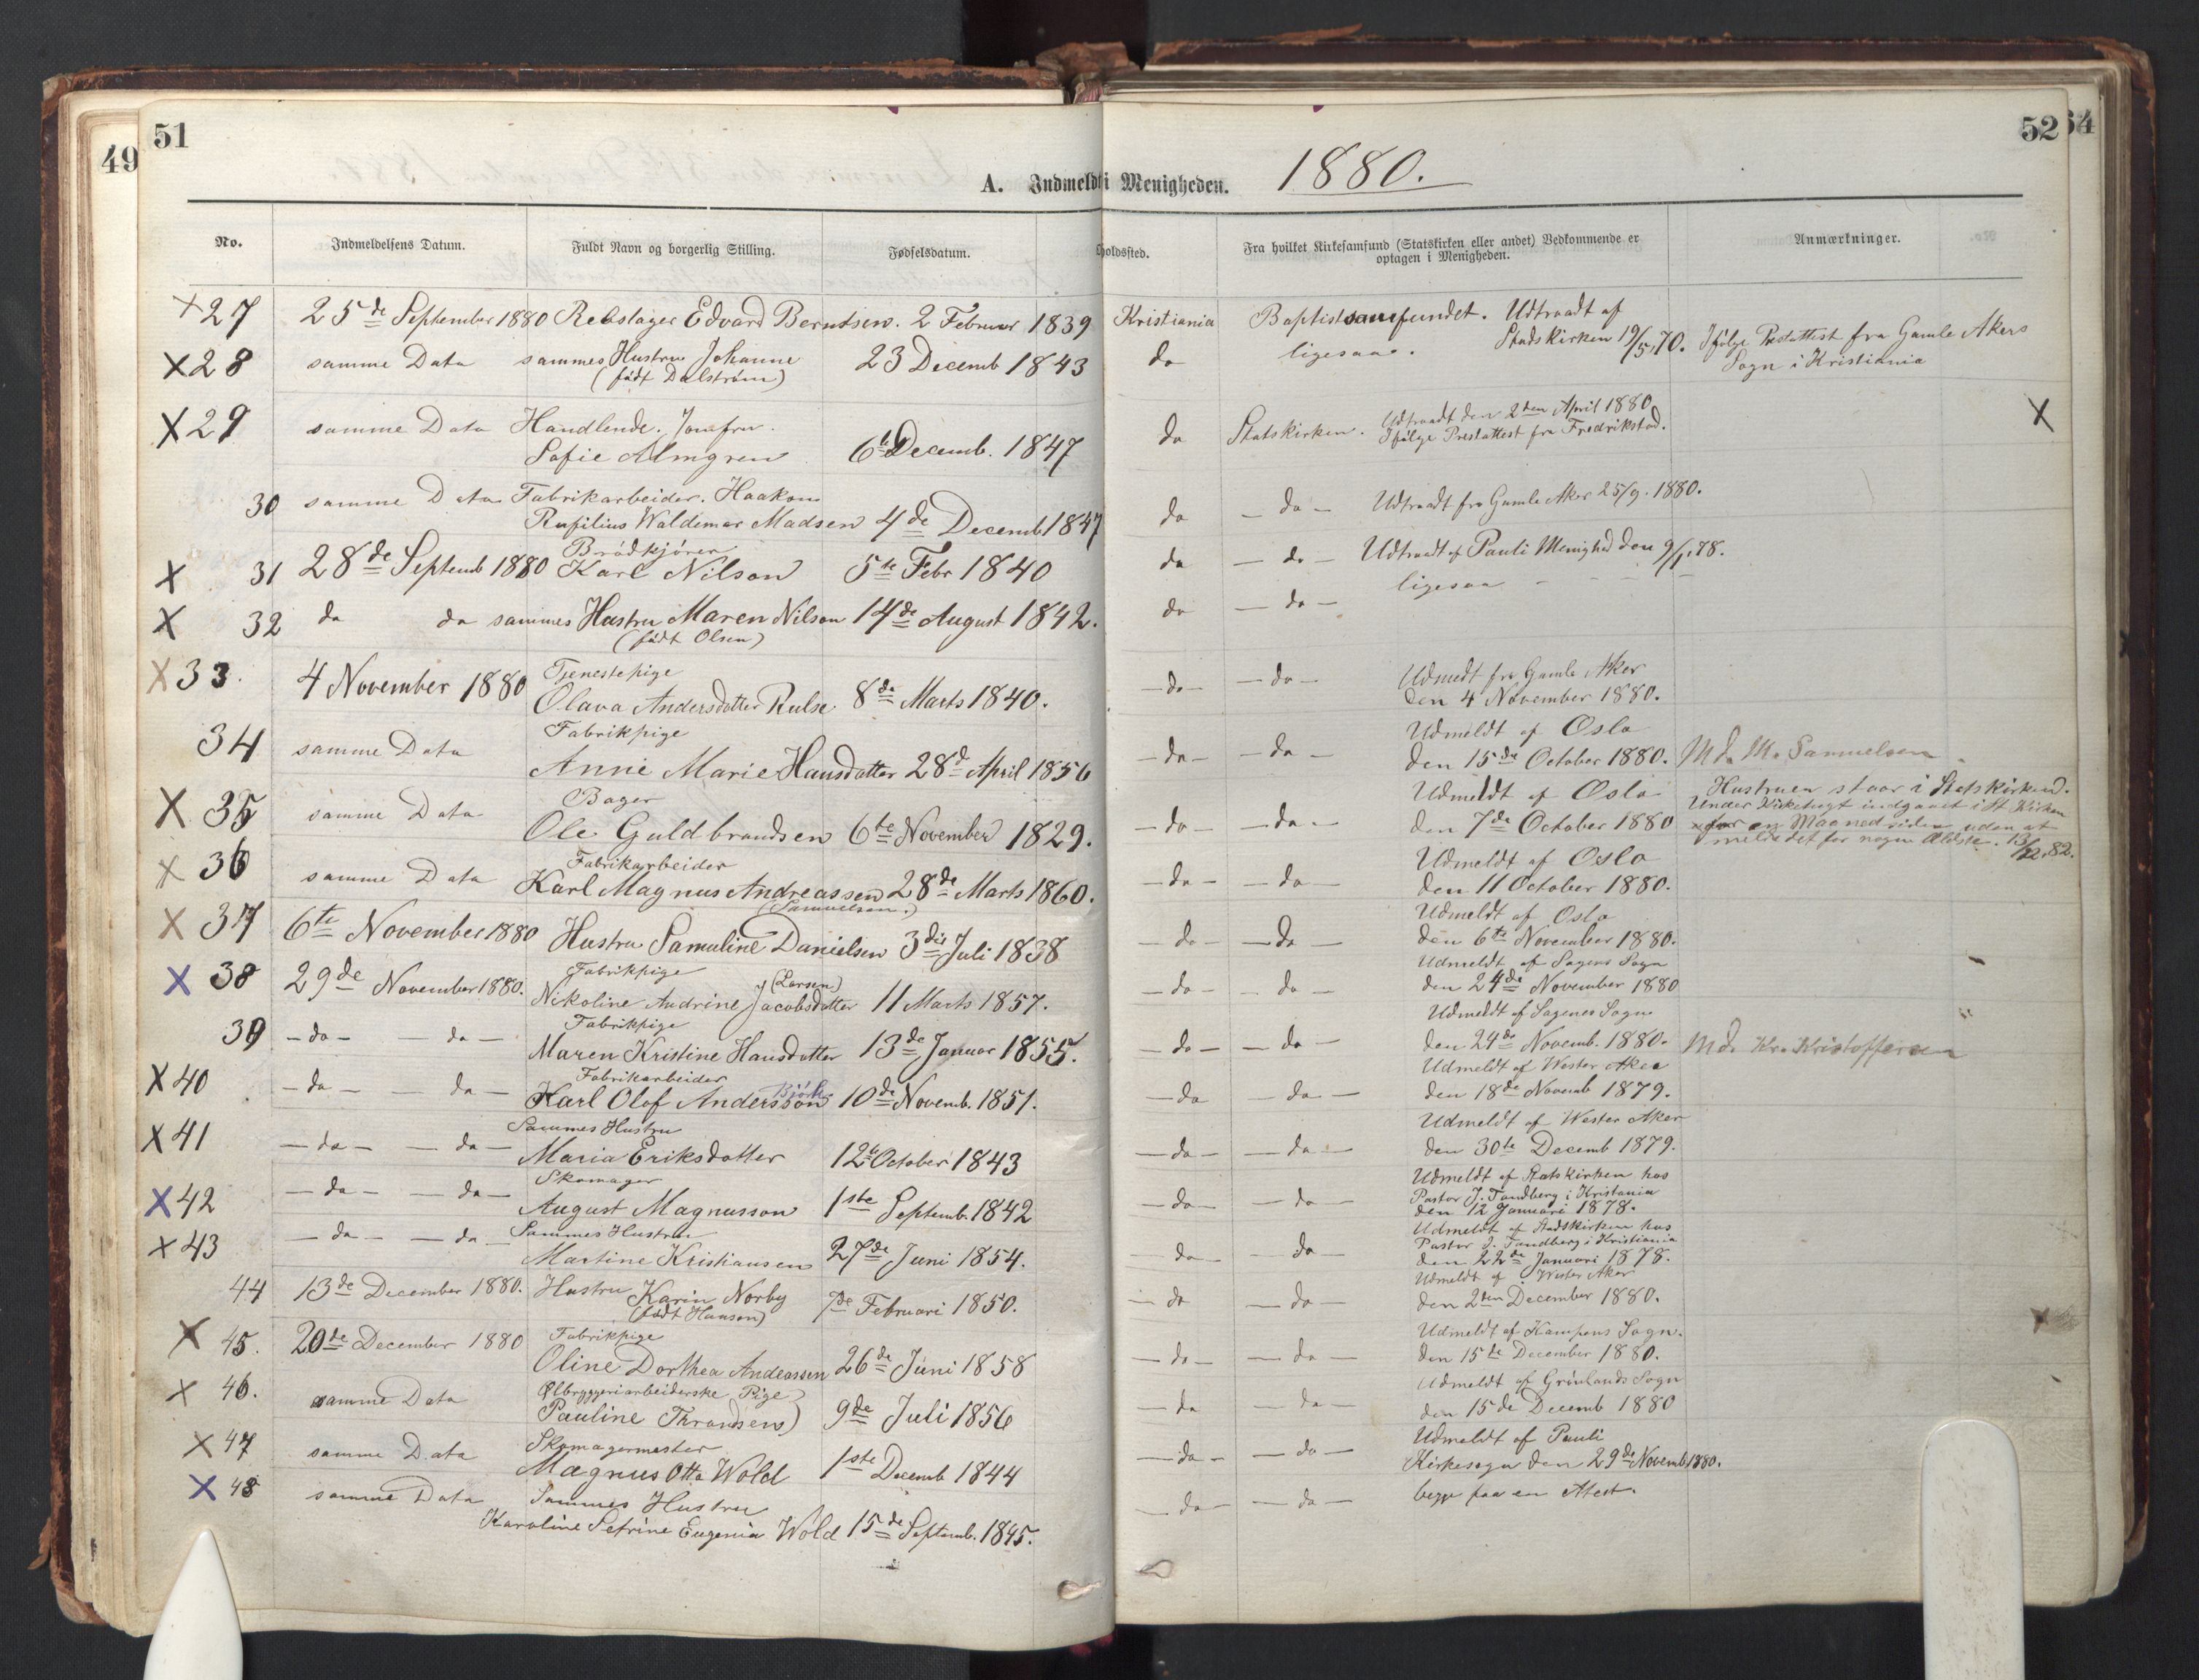 49
51
52
64
A. Indmeldt i Menigheden. 1880.
No. Indmeldelsens Datum. Fuldt Navn og borgerlig Stilling. Fødselsdatum. holdssted. Fra hvilket Kirkesamfund (Statskirken eller andet) Vedkommende er Anmærkninger.
optagen i Menigheden.
X 27 25de September 1880 Rebslager Edvard Berntsen. 2 Februar 1839 Kristiania Baptistsamfundet. Udtraadt af
Stadskirken 19/5,70. Ifølge Prestattest fra Gamle Akers
X 28 samme Data sammes Hustru Johanne 23 Decemb 1843 do ligesaa.
(født Dalstrøm) Sogn i Kristiania
X 29 samme Data Handlende. Jomfru. Udtraadt den 2den April 1880 X
Sofie Almgren 6te Decemb. 1847 do Statskirken. Ifølge Prestattest fra Fredrikstad.
30 samme Data Fabrikarbeider. Haakon
Rufilius Waldemar Madsen 4de Decemb 1847 do — do — Udtraadt fra Gamle Aker 25/9. 1880.
Brödkjörer
X 31 28de Septemb 1880 Karl Nilson 5te Febr 1840 do — do — Udtraadt af Pauli Menighed den 9/1,78.
X 32 do do sammes Hustru Maren Nilson 14de August 1842. do — do — ligesaa
(født Olsen)
Tjenestepige Udmeldt fra Gamle Aker
X 33. 4 November 1880 Olava Andersdatter Rulse 8de Marts 1840. — do — — do — den 4 November 1880.
Fabrikpige Udmeldt af Oslo
34 samme Data Anne Marie Hansdatter 28de April 1856 — do — — do — den 15de October 1880. Md. M. Samuelsen
Bager Udmeldt af Oslo Hustruen staar i Statskirken.
Under Kirketugt indgaaet i St. Kirken
X 35 samme Data Ole Guldbrandsen 6te November 1829. — do — — do — den 7de October 1880 for en Maaned siden uden at
melde det for nogen Ældste. 13/12.82.
Fabrikarbeider Udmeldt af Oslo
X 36 samme Data Karl Magnus Andreassen 28de Marts 1860. — do — — do — den 11 October 1880.
(Samuelsen.) Udmeldt af Oslo
X 37 6te November 1880 Hustru Samuline Danielsen 3die Juli 1838 — do — — do — den 6te November 1880.
Fabrikpige (Larsen) Udmeldt af Sagens Sogn
X 38 29de November 1880. Nikoline Andrine Jacobsdatter 11 Marts 1857. — do — — do — den 24de November 1880
Fabrikpige Udmeldt af Sagenes Sogn
39 — do — — do — Maren Kristine Hansdatter 13de Januar 1855. — do — — do — den 24de Novemb. 1880. Md. Kr. Kristoffersen
Fabrikarbeider Björk Udmeldt af Wester Aker
X 40 — do — — do — Karl Olof Andersson 10de Novemb. 1851. — do — — do — den 18de Novemb 1879.
Sammes Hustru Udmeldt af Wester Aker
X 41 — do — — do — Maria Eriksdatter 12te October 1843 — do — — do — den 30te Decemb 1879.
Skomager Udmeldt af Statskirken hos
X 42 — do — — do — August Magnusson 1ste Septemb. 1842 — do — — do — Pastor J. Tandberg i Kristania
den 12 Januari 1878.
Sammes Hustru Udmeldt af Stadskirken hos
X 43 — do — — do — Martine Kristiansen 27de Juni 1854. do — do — Pastor J. Tandberg i Kristiania
den 22de Januari 1878.
Udmeldt af Wester Aker
44 13de December 1880. Hustru Karin Norby 7de Februari 1850. — do — do — den 2den December 1880.
(født Hanson)
Fabrikpige Udmeldt af Kampens Sogn.
X 45. 20de December 1880 Oline Dorthea Andeassen 26de Juni 1858 — do — — do — den 15de December 1880.
Ølbryggeriarbeiderske Pige Udmeldt af Grönlands Sogn
X 46. samme Data Pauline Thrandsen) 9de Juli 1856 — do — do — den 15de Decemb 1880
Skomagermester Udmeldt af Pauli
X 47 samme Data Magnus Otto Wold 1ste Decemb 1844 — do — — do — Kirkesogn den 29de Novemb 1880.
X 48 samme Data Sammes Hustru — do — — do — begge paa en Atest.
Karoline Petrine Eugenia Wold 15de Septemb. 1845.